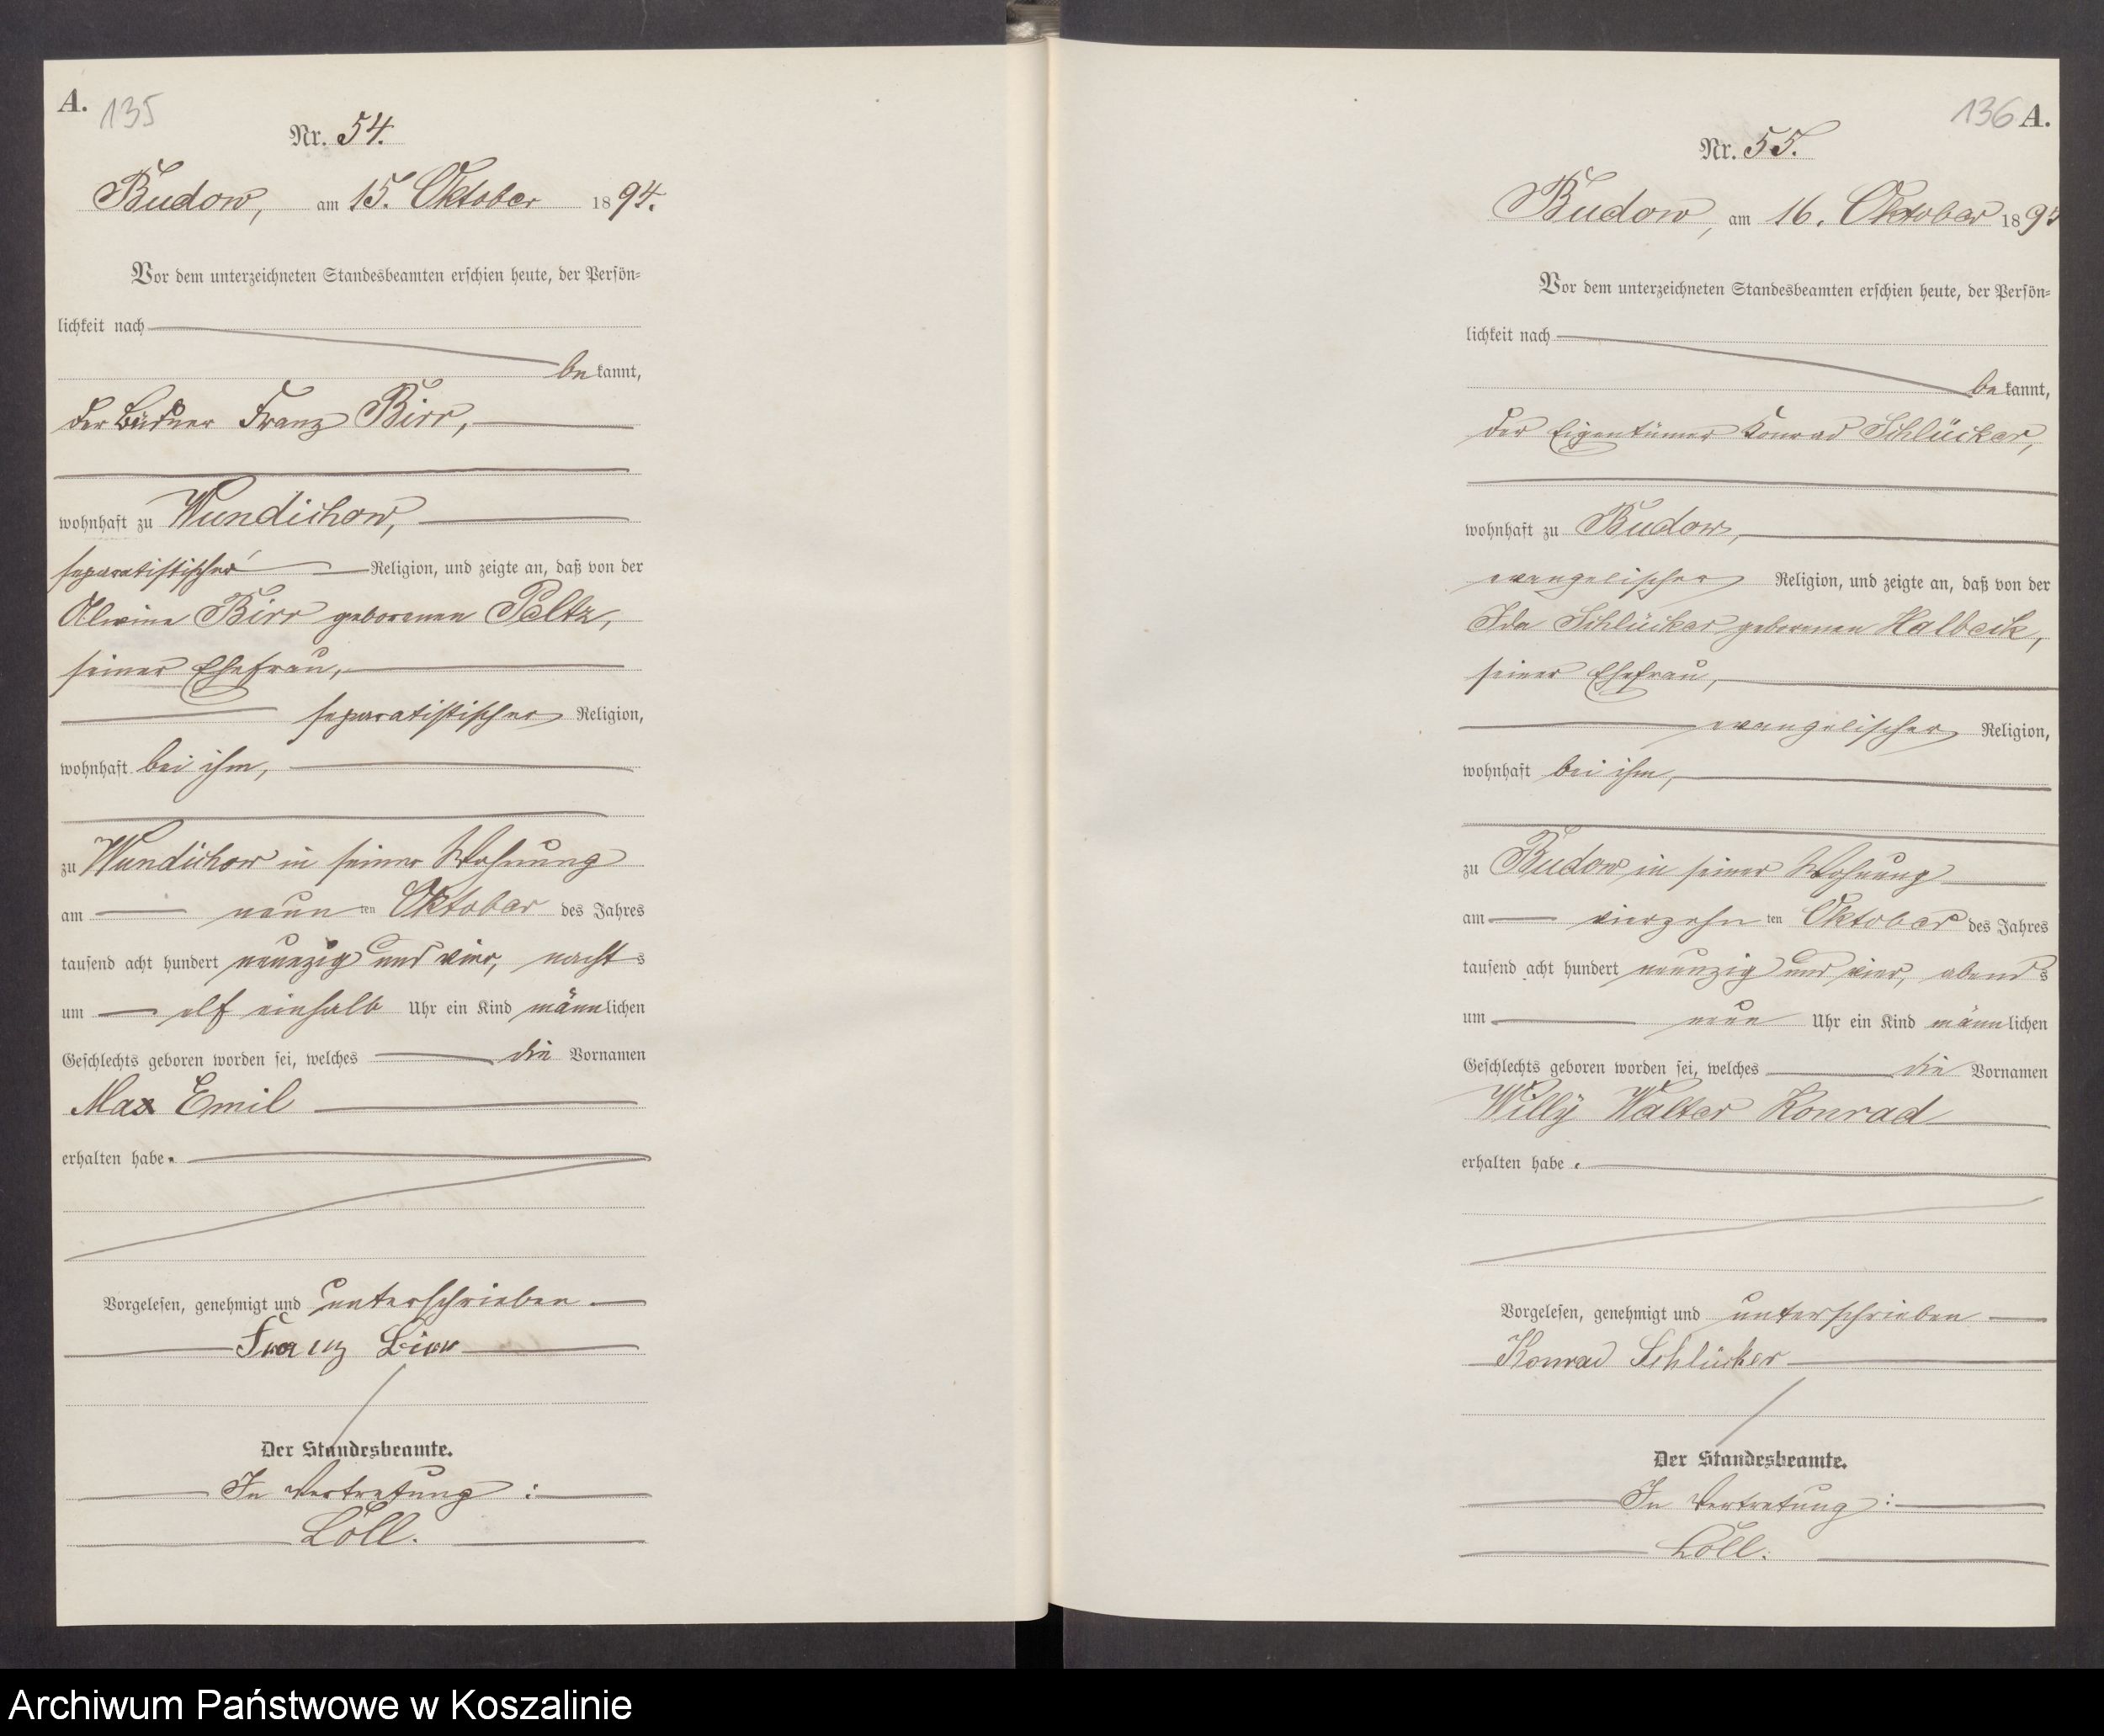 A. 135
Nr. 54.
Budow, am 15. Oktober 1894.
Vor dem unterzeichneten Standesbeamten erschien heute, der Persön=
lichkeit nach
bekannt,
der Büdner Franz Birr,
wohnhaft zu Wundichow,
separatistischer Religion, und zeigte an, daß von der
Alwine Birr geborenen Peltz,
seiner Ehefrau,
separatistischer Religion,
wohnhaft bei ihm,
zu Wundichow in seiner Wohnung
am neun ten Oktober des Jahres
tausend acht hundert neunzig und vier, nachts
um elf einhalb Uhr ein Kind männlichen
Geschlechts geboren worden sei, welches die Vornamen
Max Emil
erhalten habe.
Vorgelesen, genehmigt und unterschrieben
Franz Birr
Der Standesbeamte.
In Vertretung :
Löll.
136 A.
Nr. 55.
Budow, am 16. Oktober 1894
Vor dem unterzeichneten Standesbeamten erschien heute, der Persön=
lichkeit nach
bekannt,
der Eigentümer Konrad Schlücker,
wohnhaft zu Budow,
evangelischer Religion, und zeigte an, daß von der
Ida Schlücker geborenen Halbeck,
seiner Ehefrau,
evangelischer Religion,
wohnhaft bei ihm,
zu Budow in seiner Wohnung
am vierzehn ten Oktober des Jahres
tausend acht hundert neunzig und vier, abends
um neun Uhr ein Kind männlichen
Geschlechts geboren worden sei, welches die Vornamen
Willy Walter Konrad
erhalten habe.
Vorgelesen, genehmigt und unterschrieben
Konrad Schlücker
Der Standesbeamte.
In Vertretung :
Löll.
Archiwum Państwowe w Koszalinie